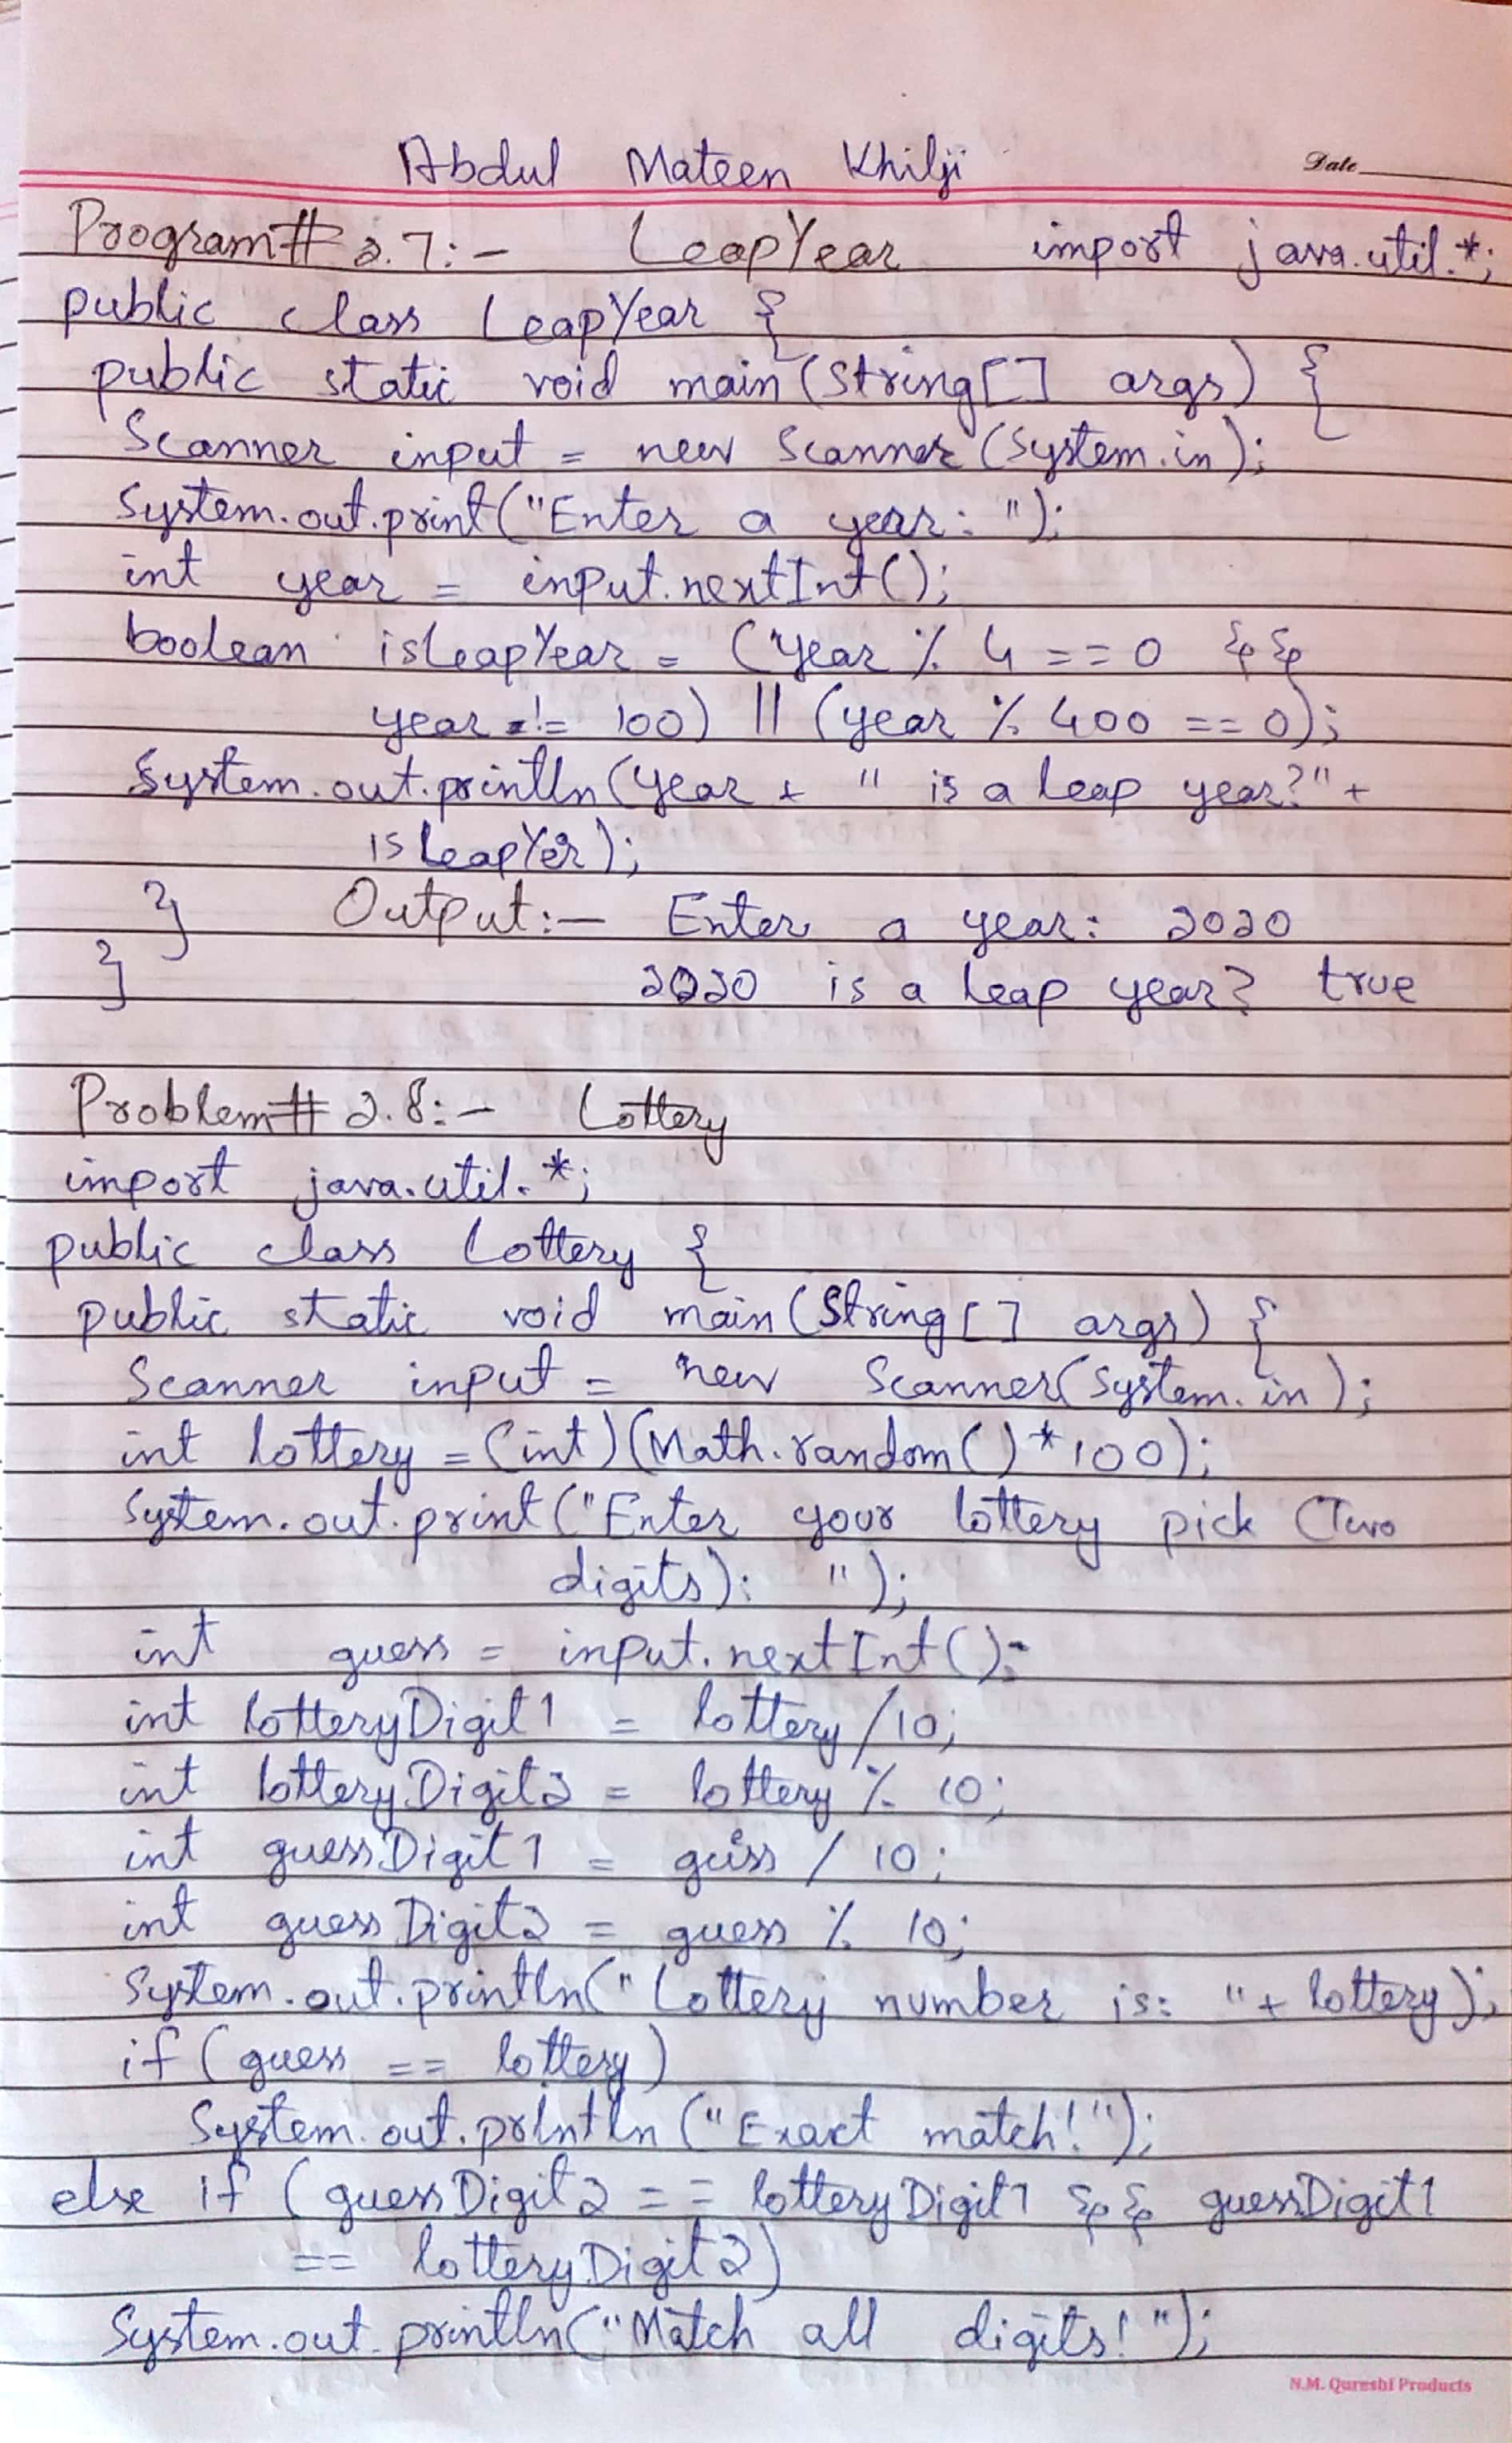 Abdul Mateen Khilji
Date
Program# 2.7:- LeapYear import java.util.*;
public class LeapYear {
public static void main(String[] args) {
Scanner input = new Scanner(System.in);
System.out.print("Enter a year: ");
int year = input.nextInt();
boolean isLeapYear = (year % 4 == 0 &&
year != 100) || (year % 400 == 0);
System.out.println(year + " is a leap year?" +
isLeapYer);
} Output:- Enter a year: 2020
} 2020 is a leap year? true
Problem# 2.8:- Lottery
import java.util.*;
public class Lottery {
public static void main(String[] args) {
Scanner input = new Scanner(System.in);
int lottery = (int)(Math.random()*100);
System.out.print("Enter your lottery pick (Two
digits): ");
int guess = input.nextInt();
int lotteryDigit1 = lottery/10;
int lotteryDigit2 = lottery % 10;
int guessDigit1 = guess / 10;
int guessDigit2 = guess % 10;
System.out.println("Lottery number is: "+ lottery);
if (guess == lottery)
System.out.println("Exact match!");
else if (guessDigit2 == lotteryDigit1 && guessDigit1
== lotteryDigit2)
System.out.println("Match all digits!");
N.M. Qureshi Products